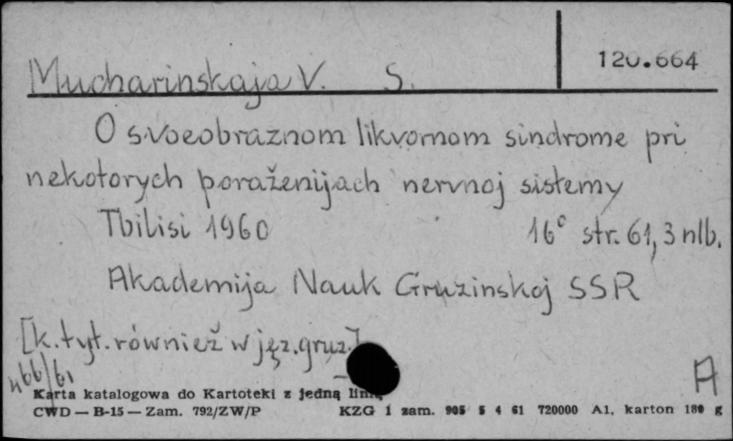 120.664
Mucharinskaja V. S.
O svoeobraznom likvornom sindrome pri
nekotorych poraženijach nervnoj sistemy
Tbilisi 1960 16° str. 61, 3 nlb.
Akademija Nauk Gruzinskoj SSR
[k. tyt. również w jęz. gruz.]
466/61 A
Karta katalogowa do Kartoteki z jedną
CWD — B-15 — Zam. 792/ZW/P KZG 1 zam. 905 5 4 61 720000 A1, karton 180 g